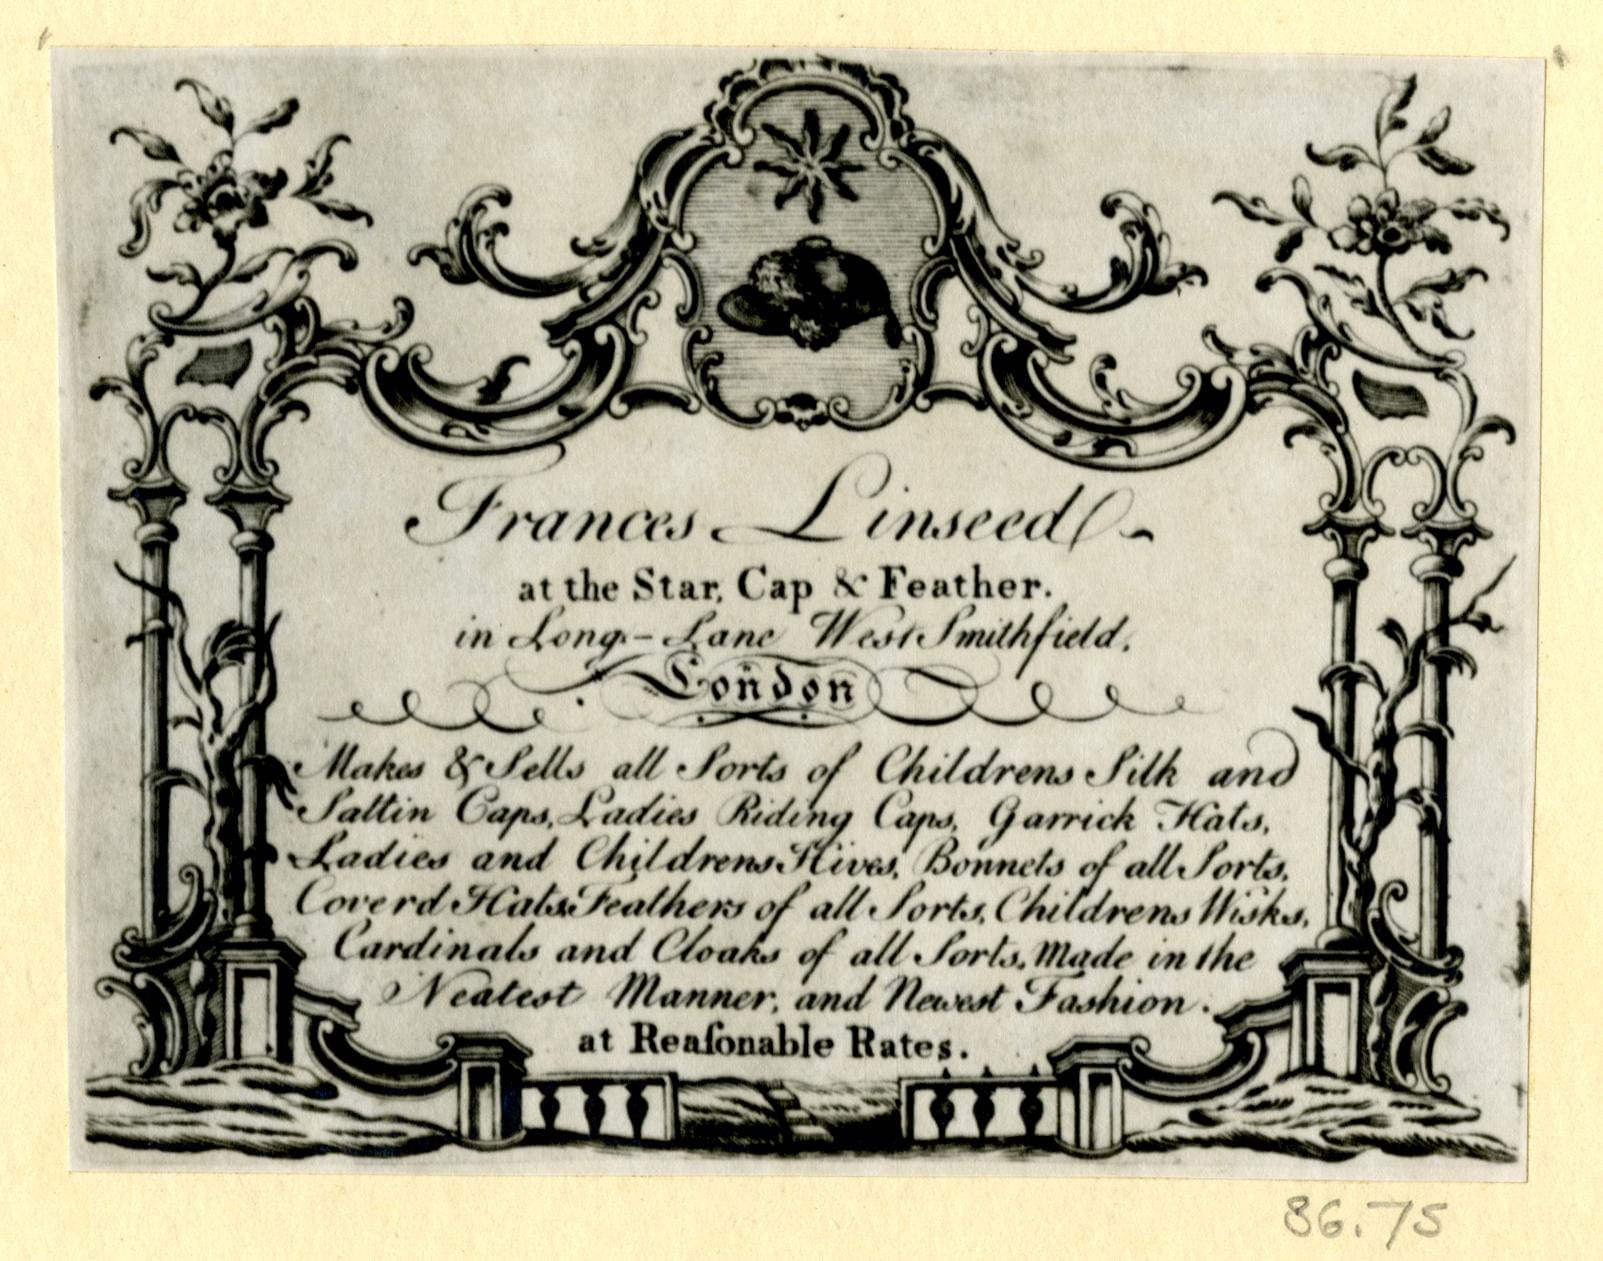 Frances Linseed
at the Star, Cap & Feather.
in Long-Lane West Smithfield.
London
Makes & Sells all Sorts of Childrens Silk and
Sattin Caps, Ladies Riding Caps, Garrick Hats,
Ladies and Childrens Hives, Bonnets of all Sorts,
Coverd Hats. Feathers of all Sorts, Childrens Wisks,
Cardinals and Cloaks of all Sorts. Made in the
Neatest Manner, and Newest Fashion.
at Reaſonable Rates.
86.75